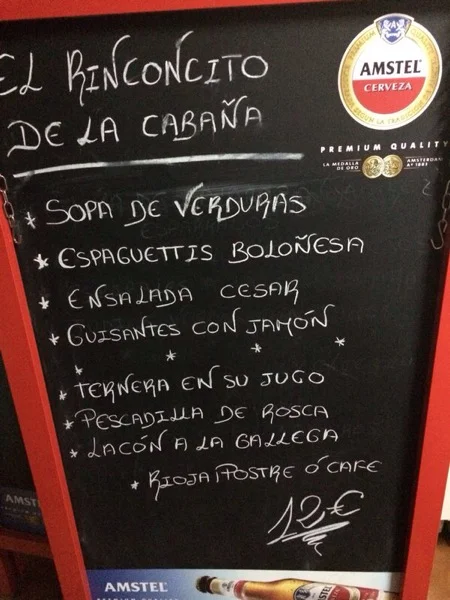 EL RINCONCITO
DE LA CABAÑA
AMSTEL
CERVEZA
PREMIUM QUALITY
LA MEDALLA
DE ORO
AMSTERDAM
Aº 1883
* SOPA DE VERDURAS
* ESPAGUETTIS BOLOÑESA
* ENSALADA CESAR
* GUISANTES CON JAMÓN
* * * *
* TERNERA EN SU JUGO
* PESCADILLA DE ROSCA
* LACÓN A LA GALLEGA
* RIOJA, POSTRE Ó CAFE
12€
AMSTEL
AMSTEL